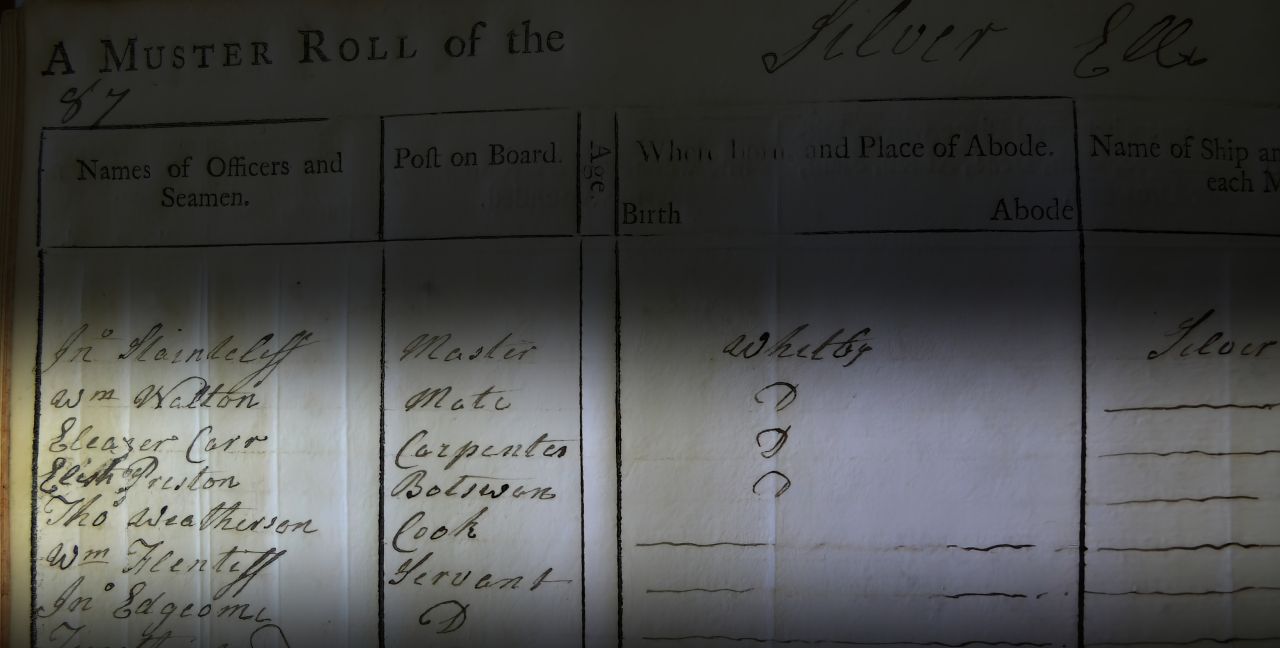 A MUSTER ROLL of the Silver Eel
87
Names of Officers and Seamen. Poſt on Board. Age. Where born, and Place of Abode. Name of Ship
Birth Abode each
Jnº Master Whitby Silver
Wm Walton Mate D
Eleazer Carr Carpenter D
Preston Botswan D
Thoˢ Weatherson Cook
Wm Flentiff Servant
Jnº Edgcome D